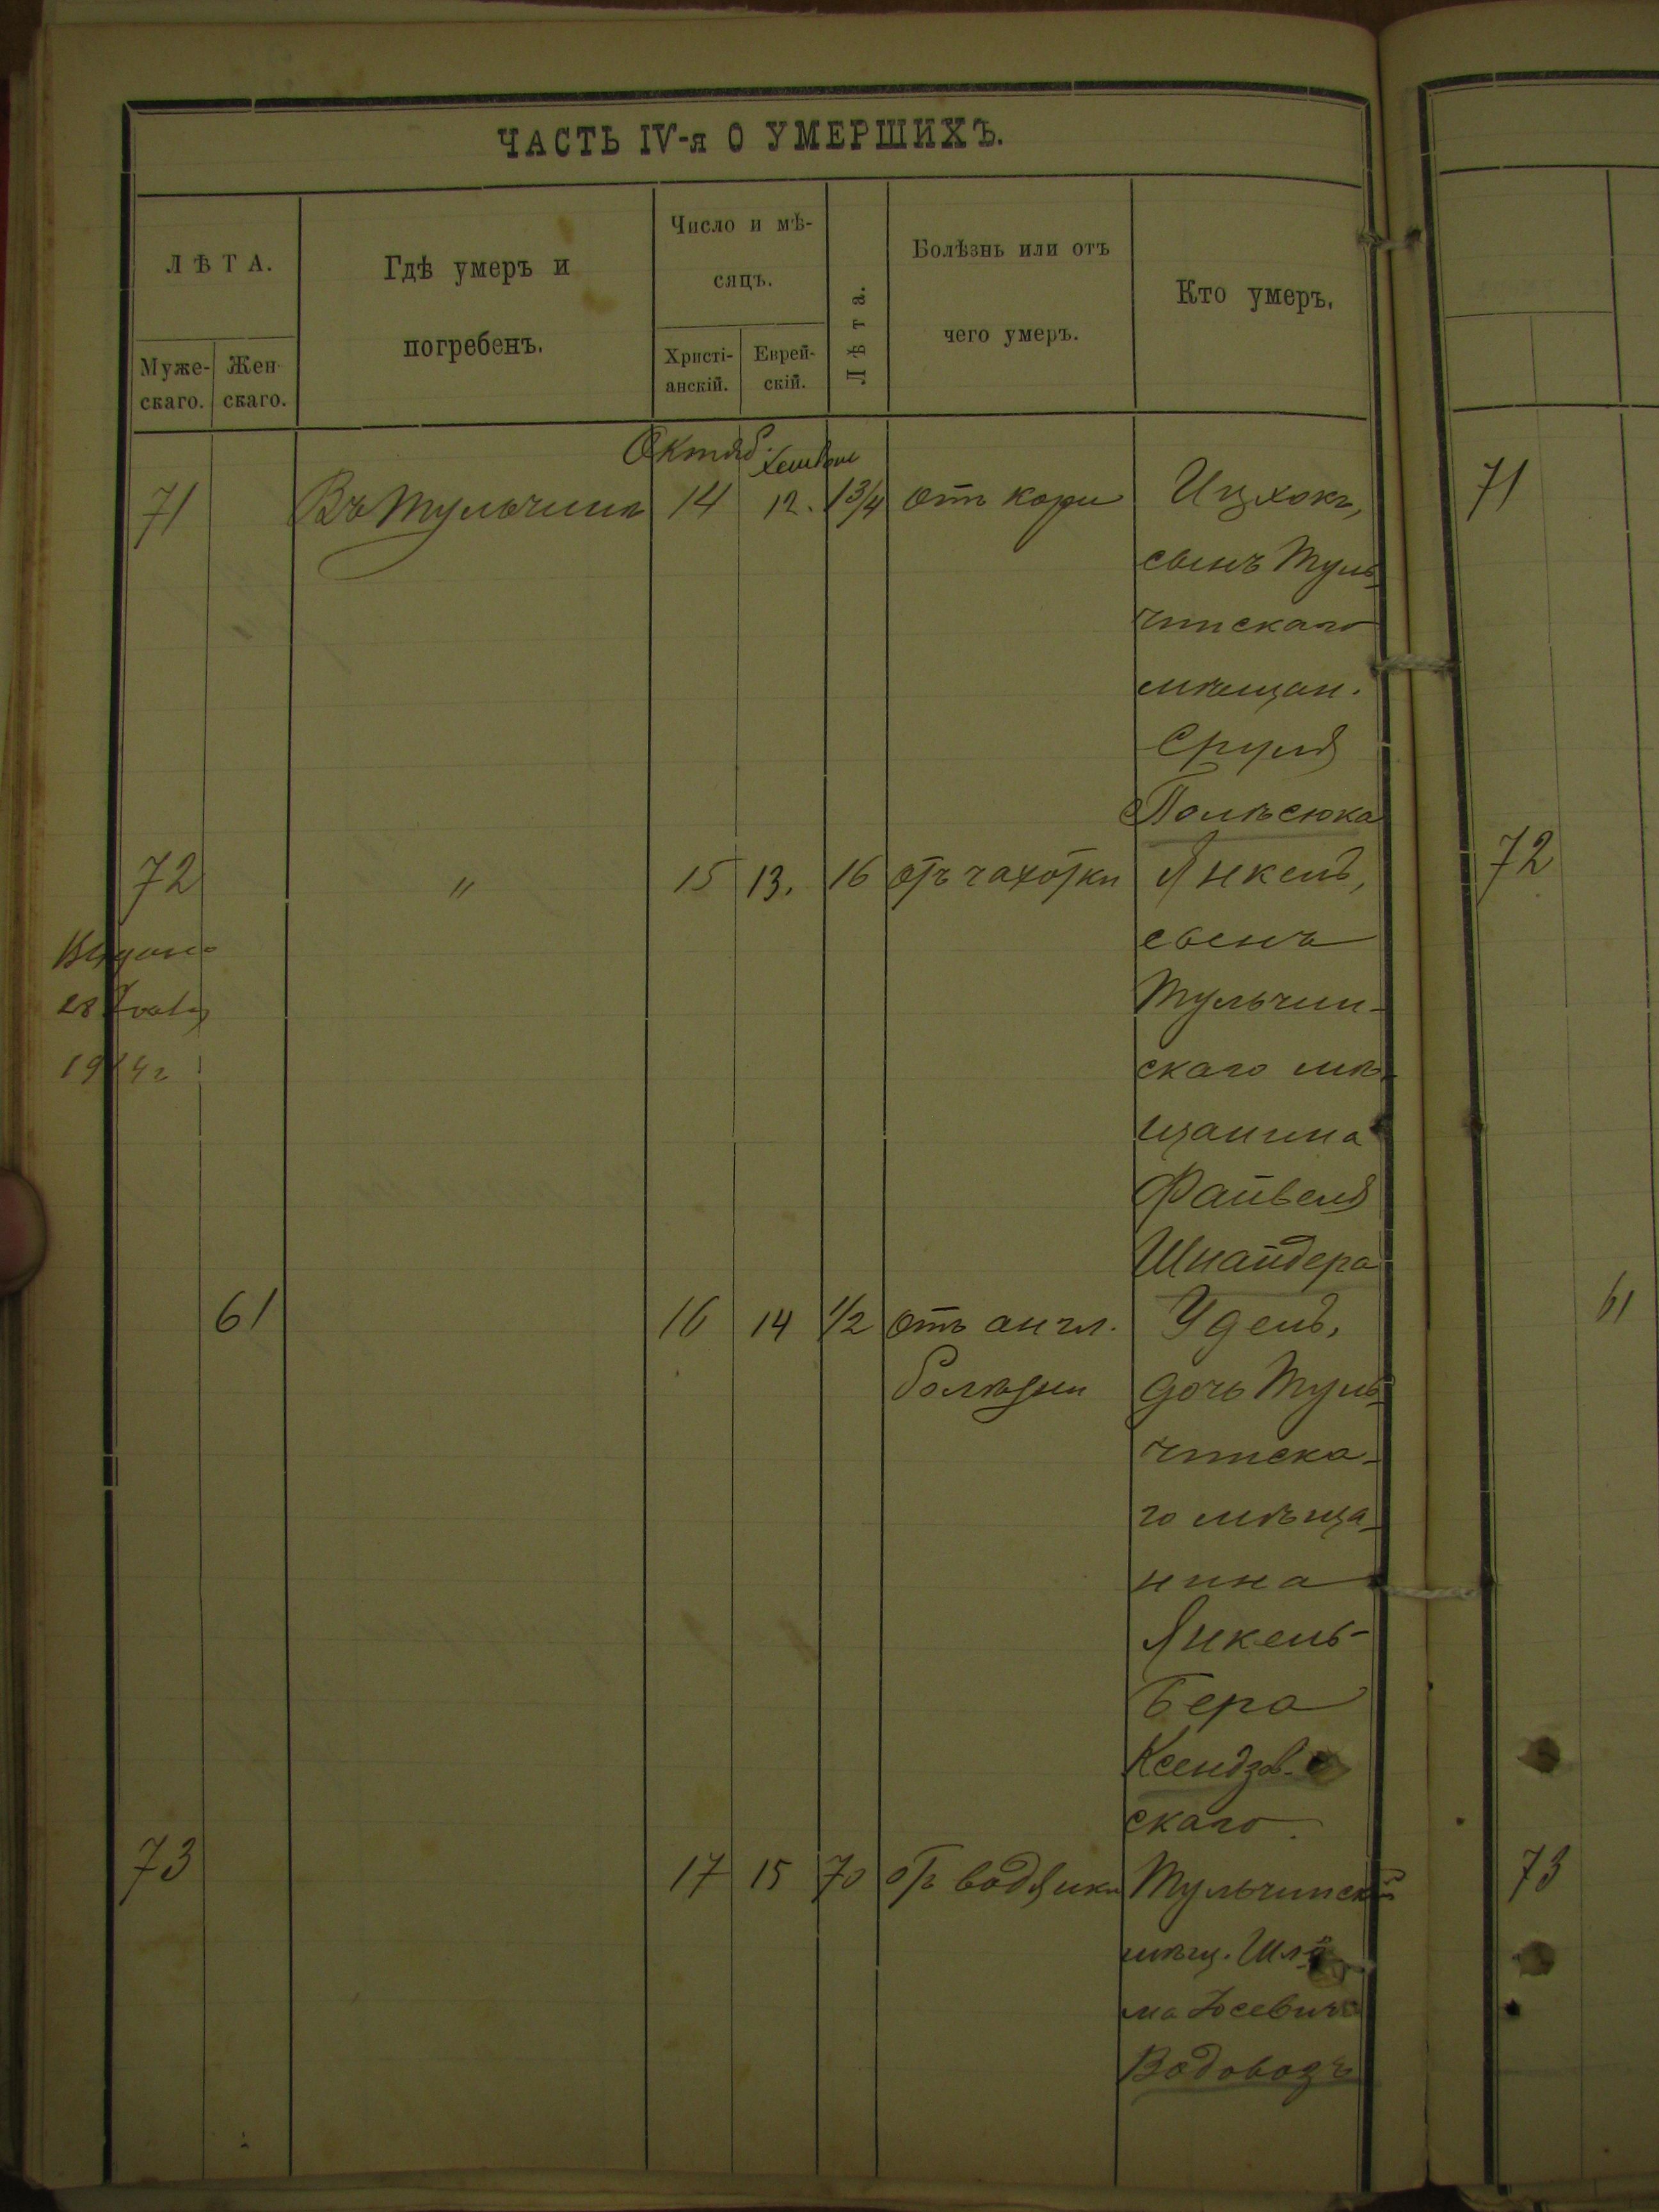 ЧАСТЬ IV-я О УМЕРШИХЪ.
ЛѢТА.
Муже-
скаго.
Жен-
скаго.
Гдѣ умеръ и
погребенъ.
Число и мѣ-
сяцъ.
Христі-
анскій.
Еврей-
скій.
Лѣта.
Болѣзнь или отъ
чего умеръ.
Кто умеръ.
Октяб. Хешвон
71 Въ Тульчинѣ 14 12. 1 3/4 отъ кори Ицхокъ,
сынъ Туль-
чинскаго
мѣщан.
Сруля
Полѣсюка
72 " 15 13. 16 отъ чахотки Янкель,
сынъ
Тульчин-
скаго мѣ-
щанина
Файвеля
Шнайдера
Выдано
28
1914 г
61 16 14 1/2 отъ англ. Удель,
болѣзни дочь Туль-
чинска-
го мѣща-
нина
Янкель-
Бера
Ксендзов-
скаго.
73 17 15 70 отъ водянки Тульчинскій
мѣщ. Шлё-
ма Іосевичъ
Водовозъ
71
72
61
73